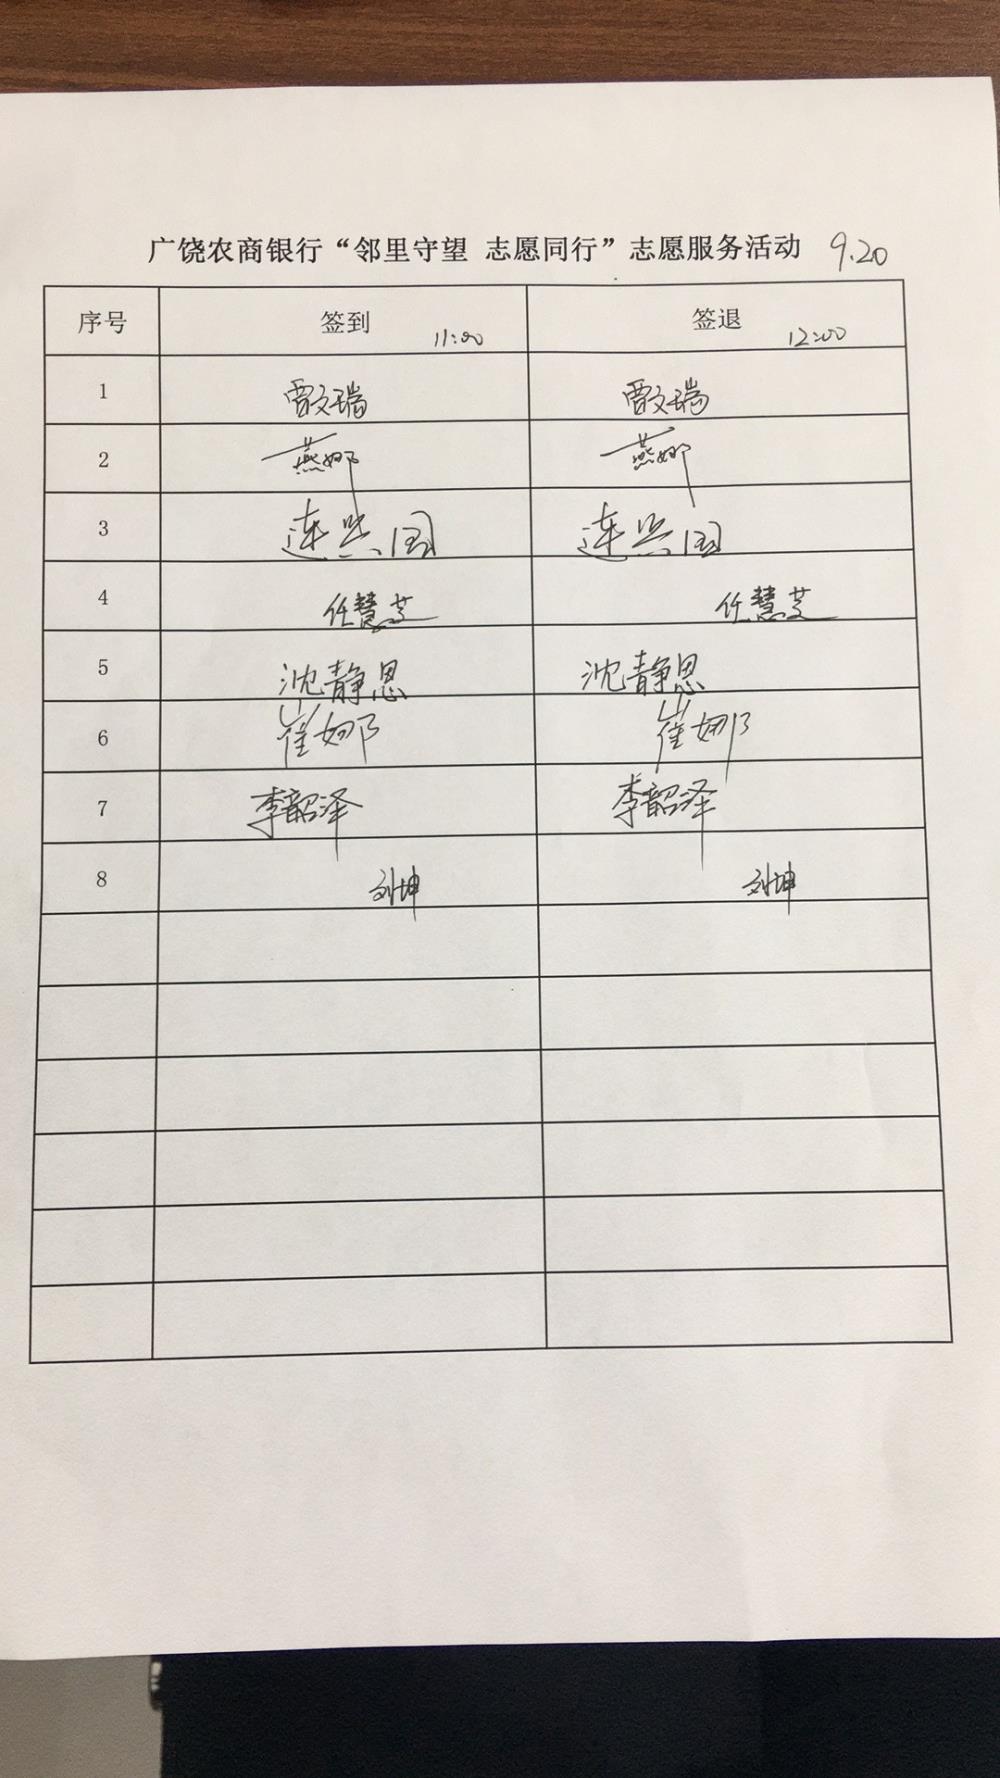 广饶农商银行“邻里守望 志愿同行”志愿服务活动 9.20
序号 签到 11:00 签退 12:00
1 贾文瑞 贾文瑞
2 燕娜 燕娜
3 连兴国 连兴国
4 任慧芝 任慧芝
5 沈静思 沈静思
6 崔娜 崔娜
7 李韶泽 李韶泽
8 刘坤 刘坤